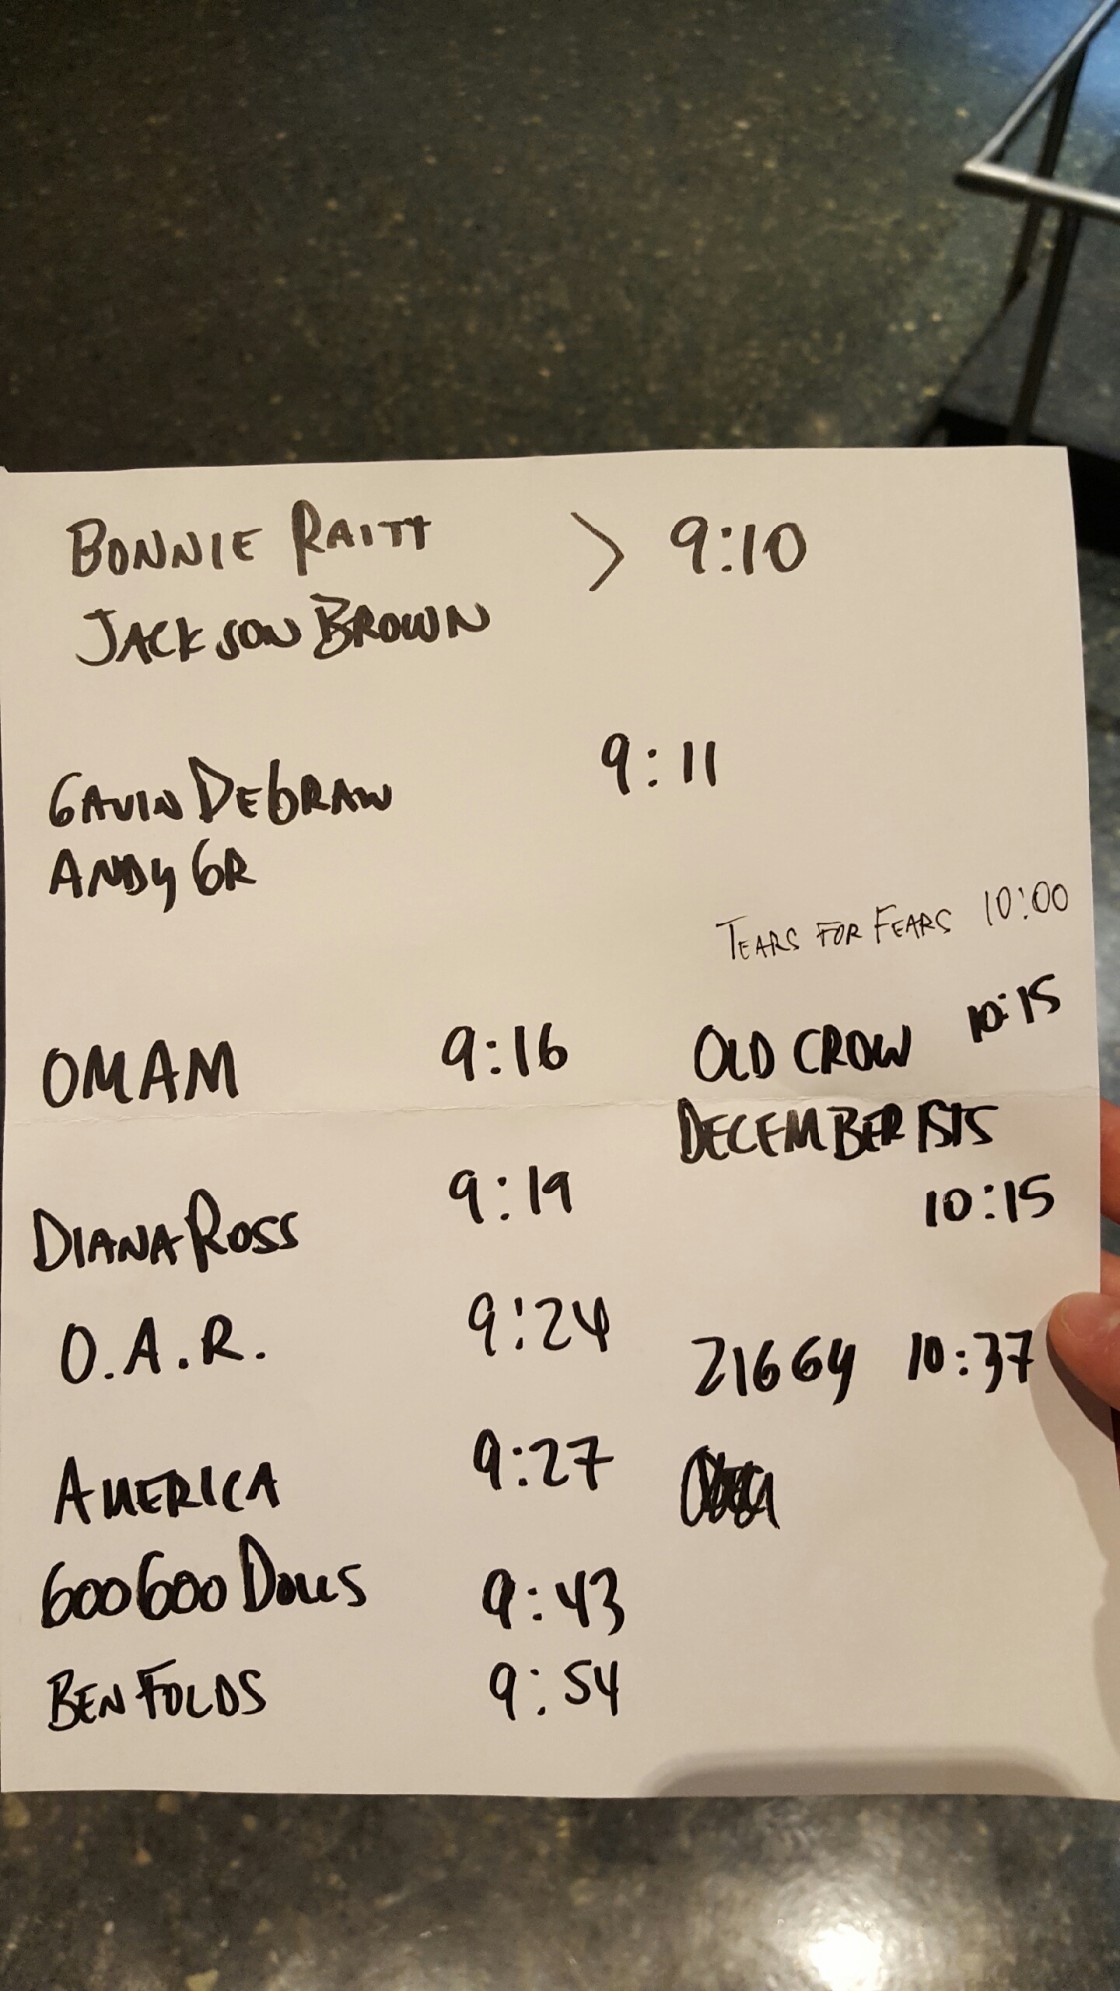 BONNIE RAITT > 9:10
JACKSON BROWN
9:11
GAVIN DEGRAW
ANDY GR
TEARS FOR FEARS 10:00
OMAM 9:16
OLD CROW 10:15
DECEMBERISTS
10:15
DIANA ROSS 9:19
O.A.R. 9:24
ZIGGY 10:37
AMERICA 9:27
GOO GOO DOLLS 9:43
BEN FOLDS 9:54